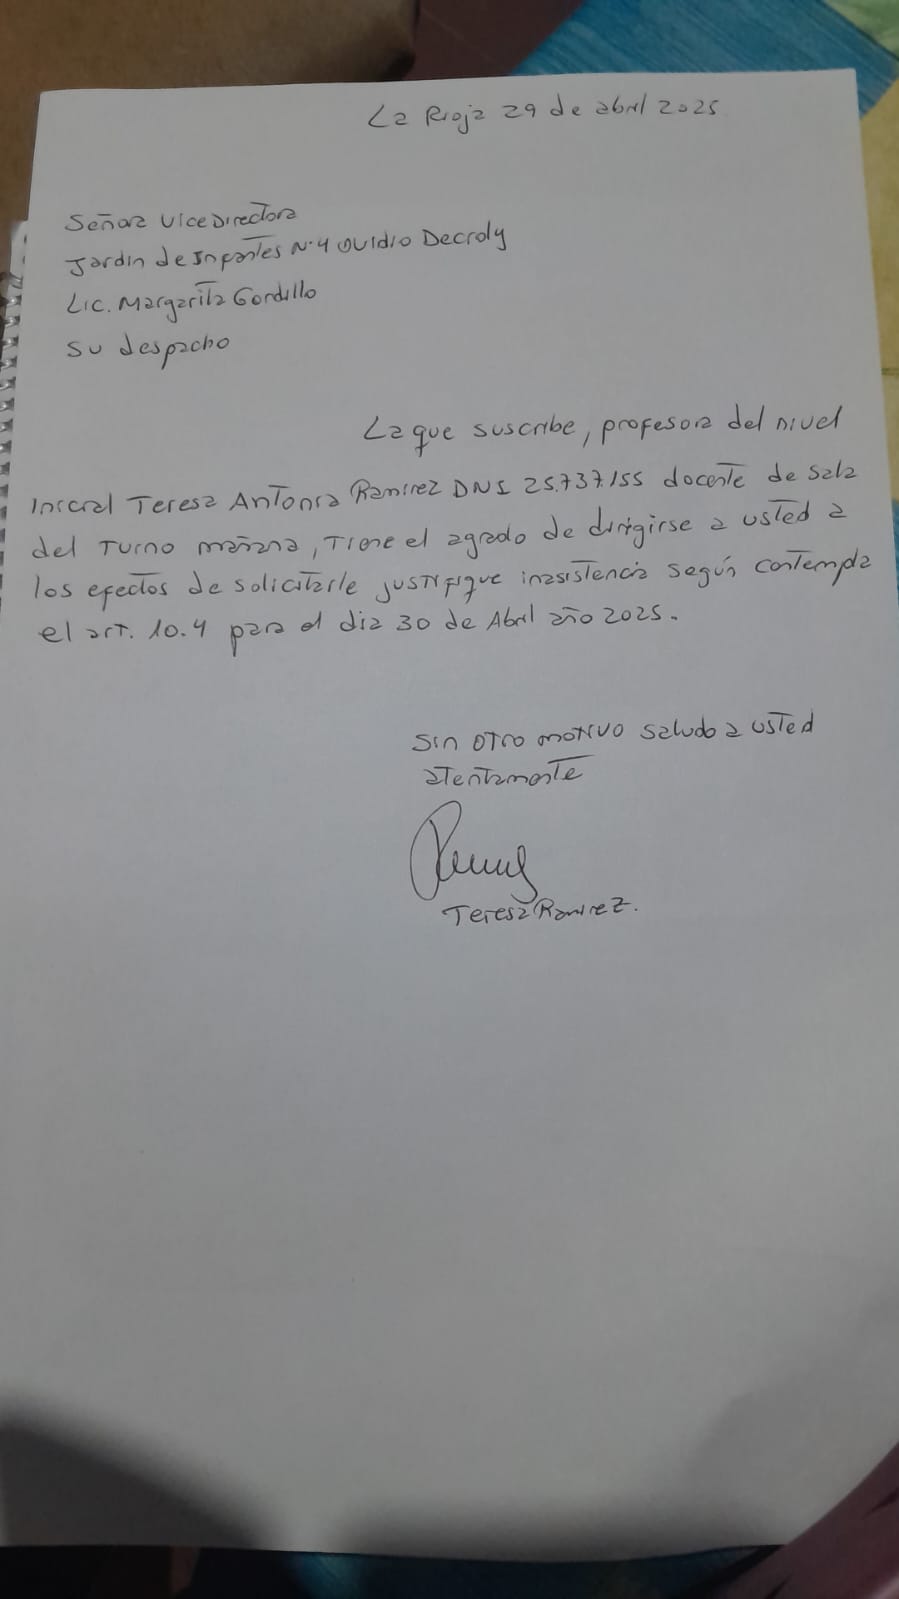 La Rioja 29 de abril 2025
Señora Vice Directora
Jardin de Infantes N°4 Ovidio Decroly
Lic. Margarita Gordillo
Su despacho
La que suscribe, profesora del nivel
Inicial Teresa Antonia Ramirez DNI 25.737.155 docente de Sala
del Turno mañana, Tiene el agrado de dirigirse a usted a
los efectos de solicitarle justifique inasistencia según contempla
el art. 10.4 para el dia 30 de Abril año 2025.
Sin otro motivo saludo a usted
atentamente
Teresa Ramirez.